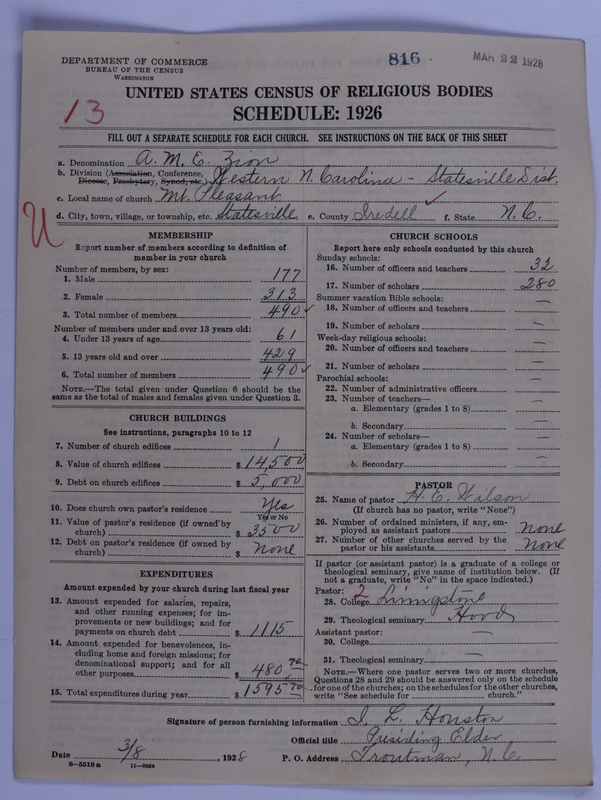 DEPARTMENT OF COMMERCE
BUREAU OF THE CENSUS
WASHINGTON
816
MAR 22 1928
13
UNITED STATES CENSUS OF RELIGIOUS BODIES
SCHEDULE: 1926
FILL OUT A SEPARATE SCHEDULE FOR EACH CHURCH. SEE INSTRUCTIONS ON THE BACK OF THIS SHEET
a. Denomination A. M. E. Zion
b. Division (Association, Conference, Diocese, Presbytery, Synod, etc.) Western N. Carolina - Statesville Dist.
c. Local name of church Mt. Pleasant
d. City, town, village, or township, etc. Statesville e. County Iredell f. State N. C.
U
MEMBERSHIP
Report number of members according to definition of
member in your church
Number of members, by sex:
1. Male 177
2. Female 313
3. Total number of members 490
Number of members under and over 13 years old:
4. Under 13 years of age 61
5. 13 years old and over 429
6. Total number of members 490
NOTE.—The total given under Question 6 should be
same as the total of males and females given under Question 3.
CHURCH BUILDINGS
See instructions, paragraphs 10 to 12
7. Number of church edifices 1
8. Value of church edifices $ 14,500
9. Debt on church edifices $ 5,000
10. Does church own pastor's residence Yes
Yes or No
11. Value of pastor's residence (if owned by
church) $ 3500
12. Debt on pastor's residence (if owned by
church) $ None
EXPENDITURES
Amount expended by your church during last fiscal year
13. Amount expended for salaries, repairs,
and other running expenses; for im-
provements or new buildings; and for
payments on church debt $ 1115
14. Amount expended for benevolences, in-
cluding home and foreign missions; for
denominational support; and for all
other purposes $ 480 70
15. Total expenditures during year $ 1595 70
CHURCH SCHOOLS
Report here only schools conducted by this church
Sunday schools:
16. Number of officers and teachers 32
17. Number of scholars 280
Summer vacation Bible schools:
18. Number of officers and teachers —
19. Number of scholars —
Week-day religious schools:
20. Number of officers and teachers —
21. Number of scholars —
Parochial schools:
22. Number of administrative officers —
23. Number of teachers—
a. Elementary (grades 1 to 8) —
b. Secondary —
24. Number of scholars—
a. Elementary (grades 1 to 8) —
b. Secondary —
PASTOR
25. Name of pastor H. C. Wilson
(If church has no pastor, write "None")
26. Number of ordained ministers, if any, em-
ployed as assistant pastors None
27. Number of other churches served by the
pastor or his assistants None
If pastor (or assistant pastor) is a graduate of a college or
theological seminary, give name of institution below. (If
not a graduate, write "No" in the space indicated.)
Pastor: 2
28. College Livingstone
29. Theological seminary Hood
Assistant pastor:
30. College —
31. Theological seminary —
NOTE.—Where one pastor serves two or more churches,
Questions 28 and 29 should be answered only on the schedule
for one of the churches; on the schedules for the other churches,
write "See schedule for church."
Signature of person furnishing information I. L. Houston
Official title Presiding Elder
Date 3/8, 1928 P. O. Address Troutman, N. C.
8—5518a 11—9054